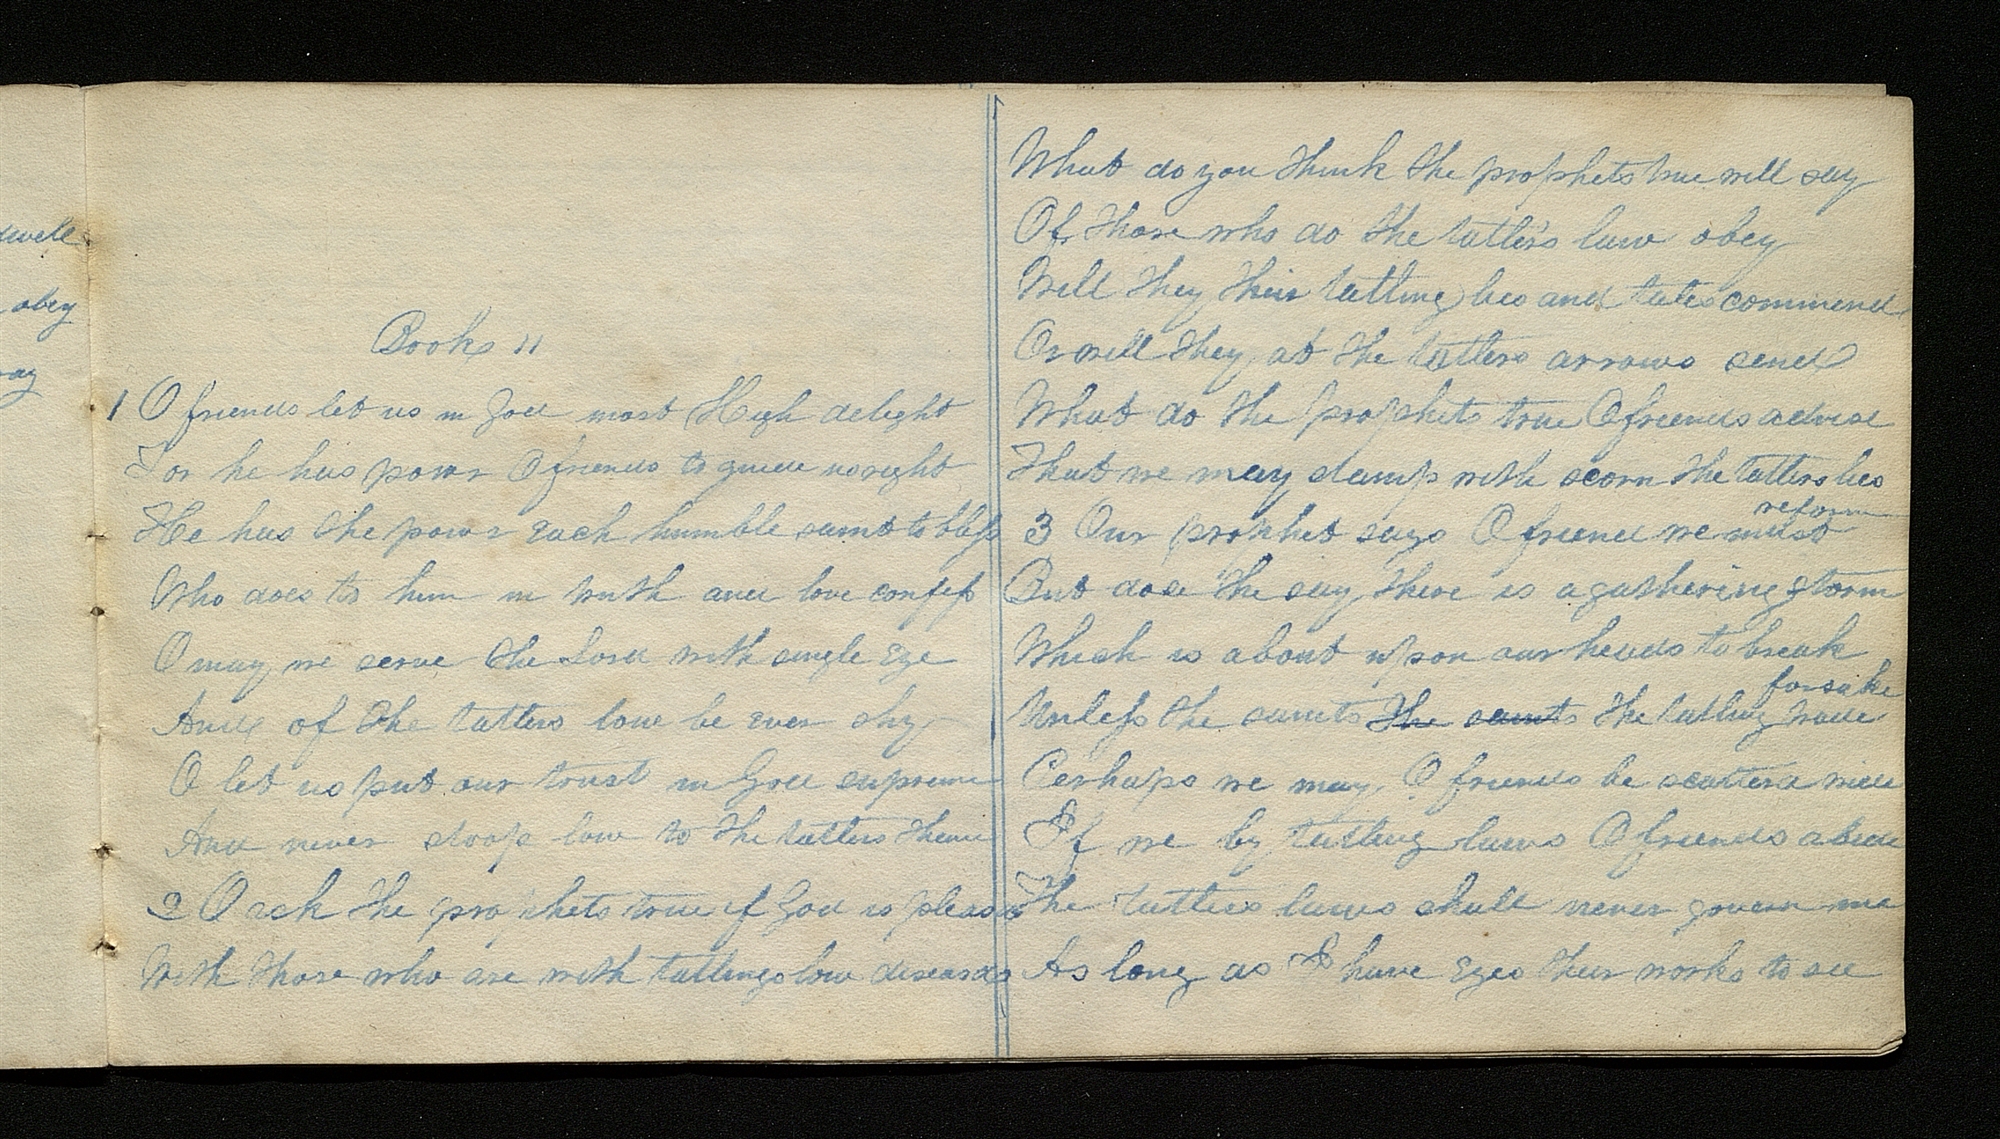 dwell
obey
ray
Book 11
1 O friends let us in God most High delight
For he has powr O friends to guide us right
He has the powr each humble saint to bless
Who does to him in truth and love confess
O may we serve the Lord with single Eye
And of the tatlers love be ever shy
O let us put our trust in God supreme
And never stoop low to the tatlers theme
2 O ask the prophets true if God is pleased
With those who are with tatlings low diseased
What do you think the prophets true will say
Of those who do the tatlers law obey
Will they their tatling lies and tales commend
Or will they at the tatlers arrows send
What do the prophets true O friends advise
That we may stamp with scorn the tatlers lies
3 Our prophet says O friend we must reform
But dose the say there is a gathering storm
Which is about upon our heads to break
Unless the saints The saints the tatling trade forsake
Perhaps we may O friends be scatterd wide
If we by tatling laws O friends abide
The tatlers laws shall never govern me
As long as I have Eyes their works to see